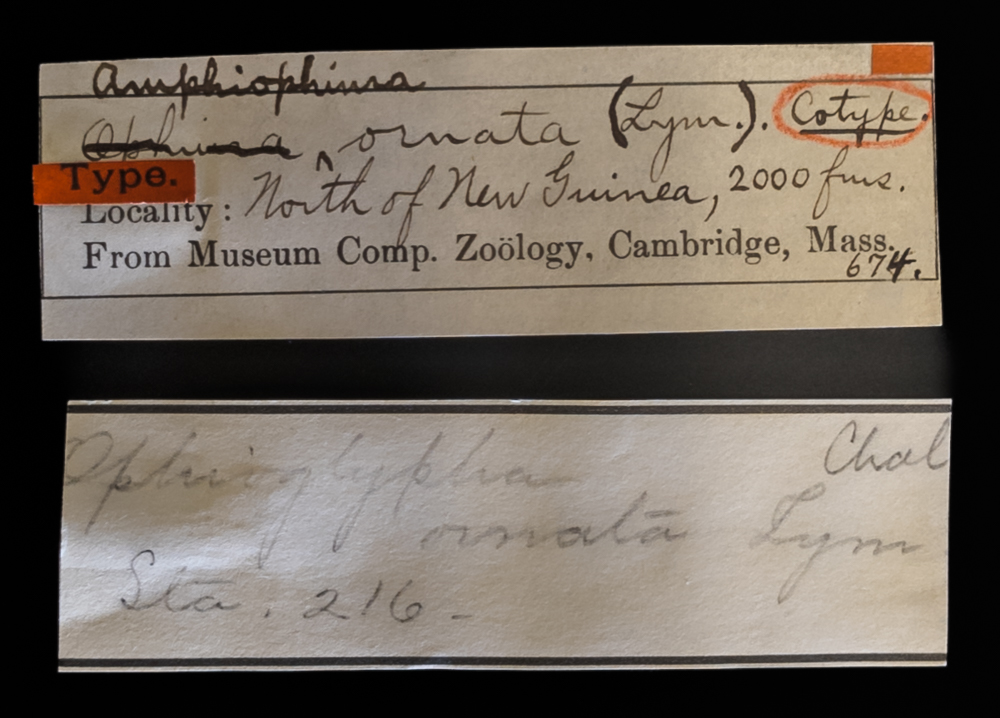 Amphiophiura
Ophiura ^ ornata (Lym.). Cotype.
Type.
Locality: North of New Guinea, 2000 fms.
From Museum Comp. Zoölogy, Cambridge, Mass.
674.
Ophioglypha Chal
ornata Lym
Sta. 216 -